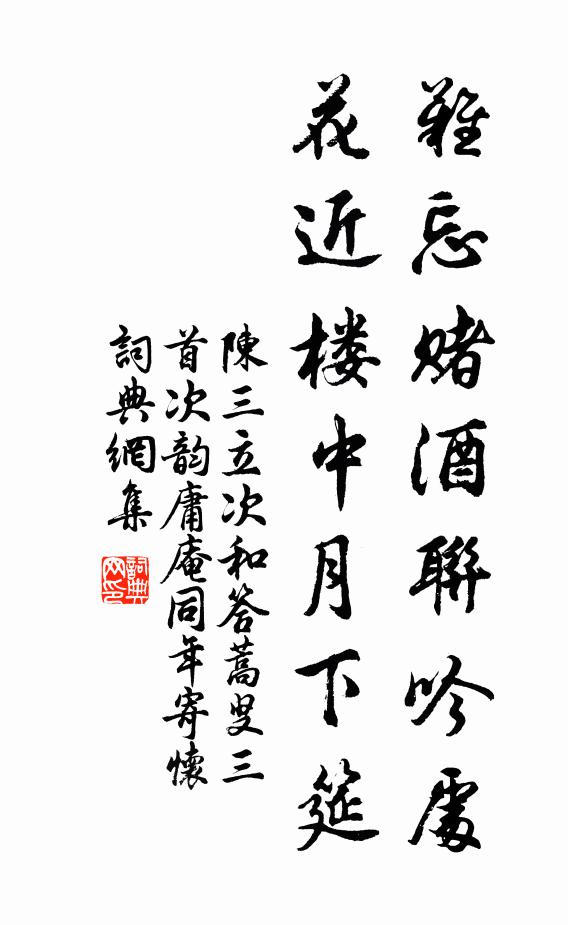 難忘賭酒聯吟處
花近楼中月下筵
陳三立次和答蒿叟三
首次韵庸庵同年寄懷
詞典網集
詞典網印